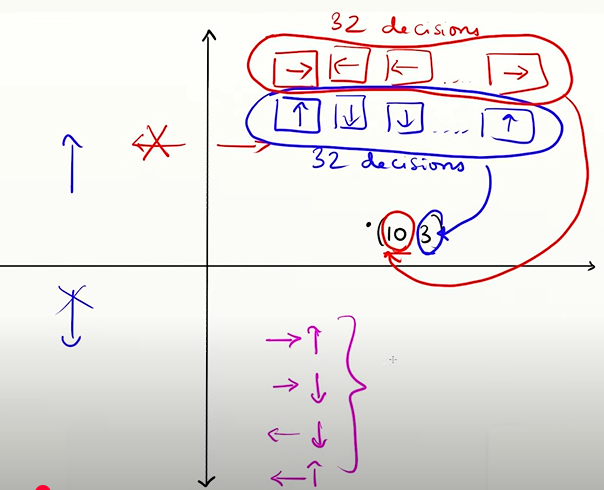 32 decisions
32 decisions
(10 3)